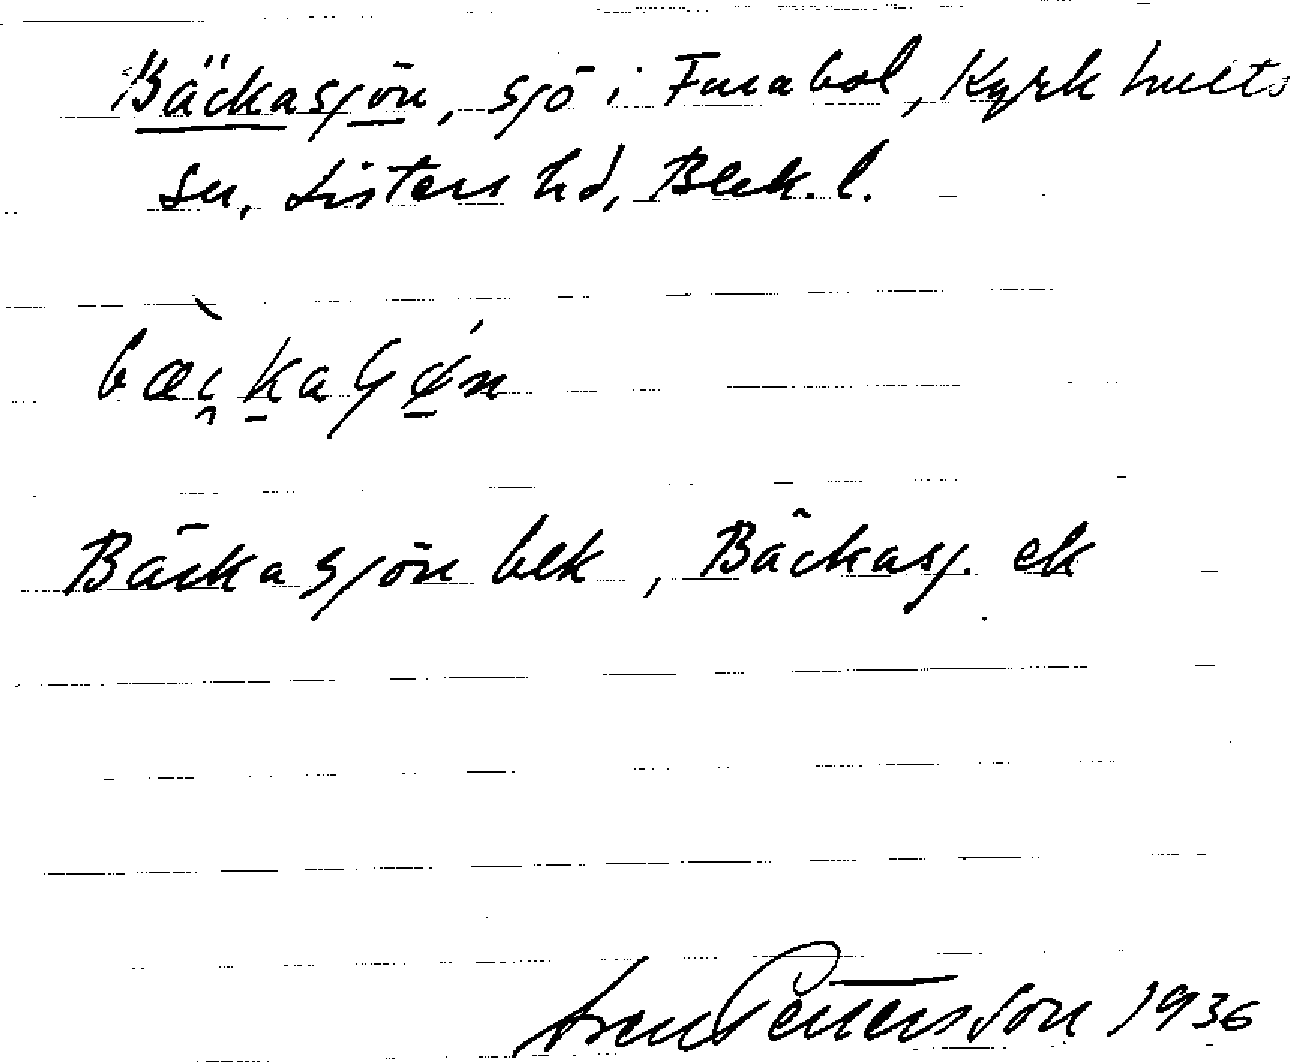 Bäckasjön, sjö i Furabol, Kyrkhults
sn, Listers hd, Blek. l.
Bäckasjön bek, Bäckasj. ek
Pettersson 1936